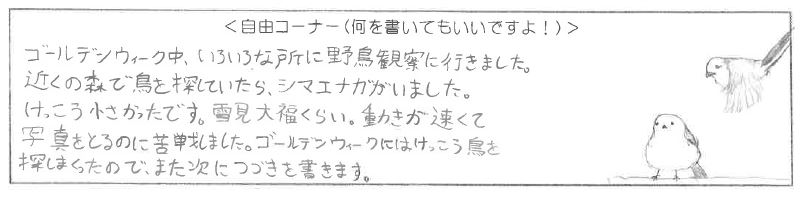 ＜自由コーナー(何を書いてもいいですよ！)＞
ゴールデンウィーク中、いろいろな所に野鳥観察に行きました。
近くの森で鳥を探していたら、シマエナガがいました。
けっこう小さかったです。雪見大福くらい。動きが速くて
写真をとるのに苦戦しました。ゴールデンウィークにはけっこう鳥を
探しまくったので、また次につづきを書きます。